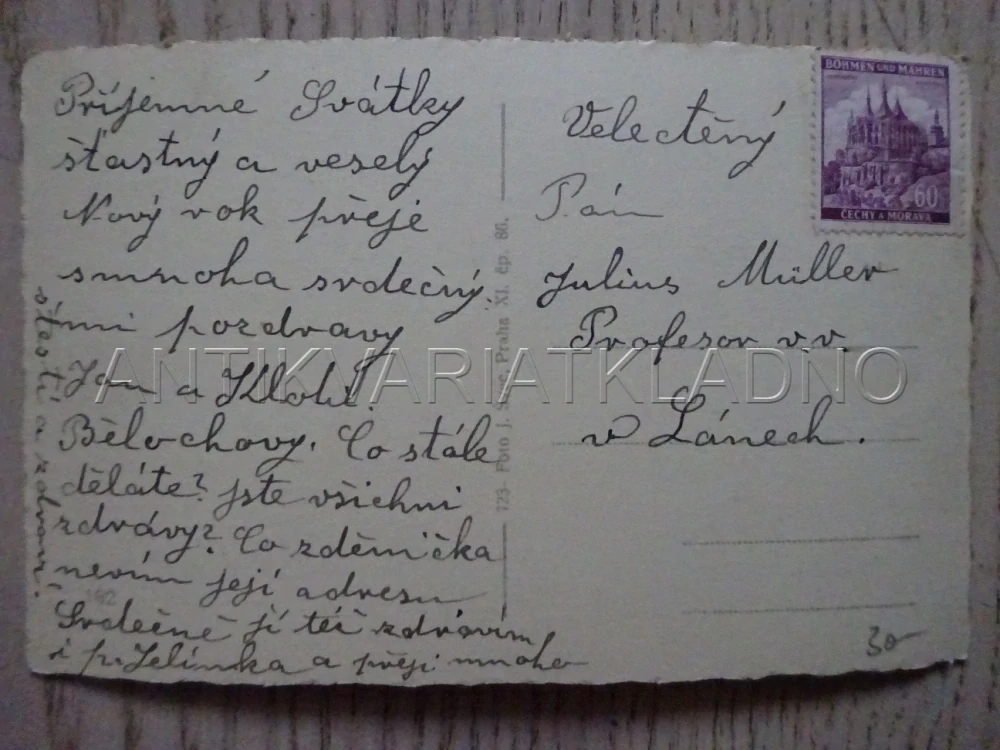 Příjemné Svátky
šťastný a veselý
Nový rok přeje
s mnoha srdečný-
mi pozdravy
Jan a Klot.
Bělochovy. Co stále
děláte? jste všichni
zdrávy? Co zděnička
nevím její adresu
Srdečně jí též zdravím
i p. Jelínka a přeji mnoho
štestí a zdraví.
723- Foto J. Praha XI. čp. 80.
Velectěný
Pán
Julius Müller
Profesor v.v.
v Lánech.
BÖHMEN UND MÄHREN
60
ČECHY A MORAVA
30-
ANTIKVARIATKLADNO